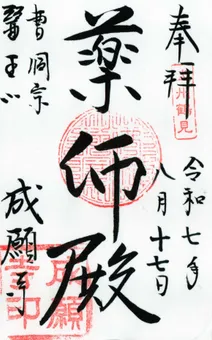 奉拝
令和七年
八月十七日
薬師殿
曹洞宗
醫王山
成願寺
成願
寺印